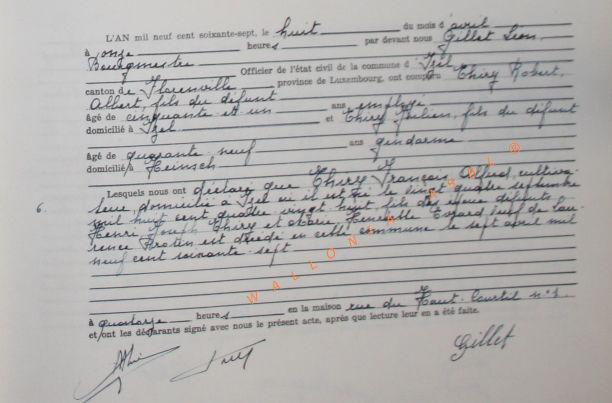 L'AN mil neuf cent soixante-sept, le huit du mois d'avril
à onze heures par devant nous Gillet Léon,
Bourgmestre Officier de l'état civil de la commune d'Izel
canton de Florenville province de Luxembourg, ont comparu Thiry Robert,
Albert, fils du défunt
âgé de cinquante et un ans employé
domicilié à Izel et Thiry Julien, fils du défunt
âgé de quarante neuf ans gendarme
domicilié à Heinsch
Lesquels nous ont déclaré que Thiry François Alfred, cultiva-
teur, domicilié à Izel où il est né le vingt quatre septembre
mil huit cent quatre vingt huit fils des époux défunts
6. Henri Joseph Thiry et Marie Henriette Evrard veuf de Lau-
rence Protin est décédé en cette commune le sept avril mil
neuf cent soixante-sept
à quatorze heures en la maison rue du Haut-Courtil n° 1.
et/ont les déclarants signé avec nous le présent acte, après que lecture leur en a été faite.
Gillet
WALLONIE